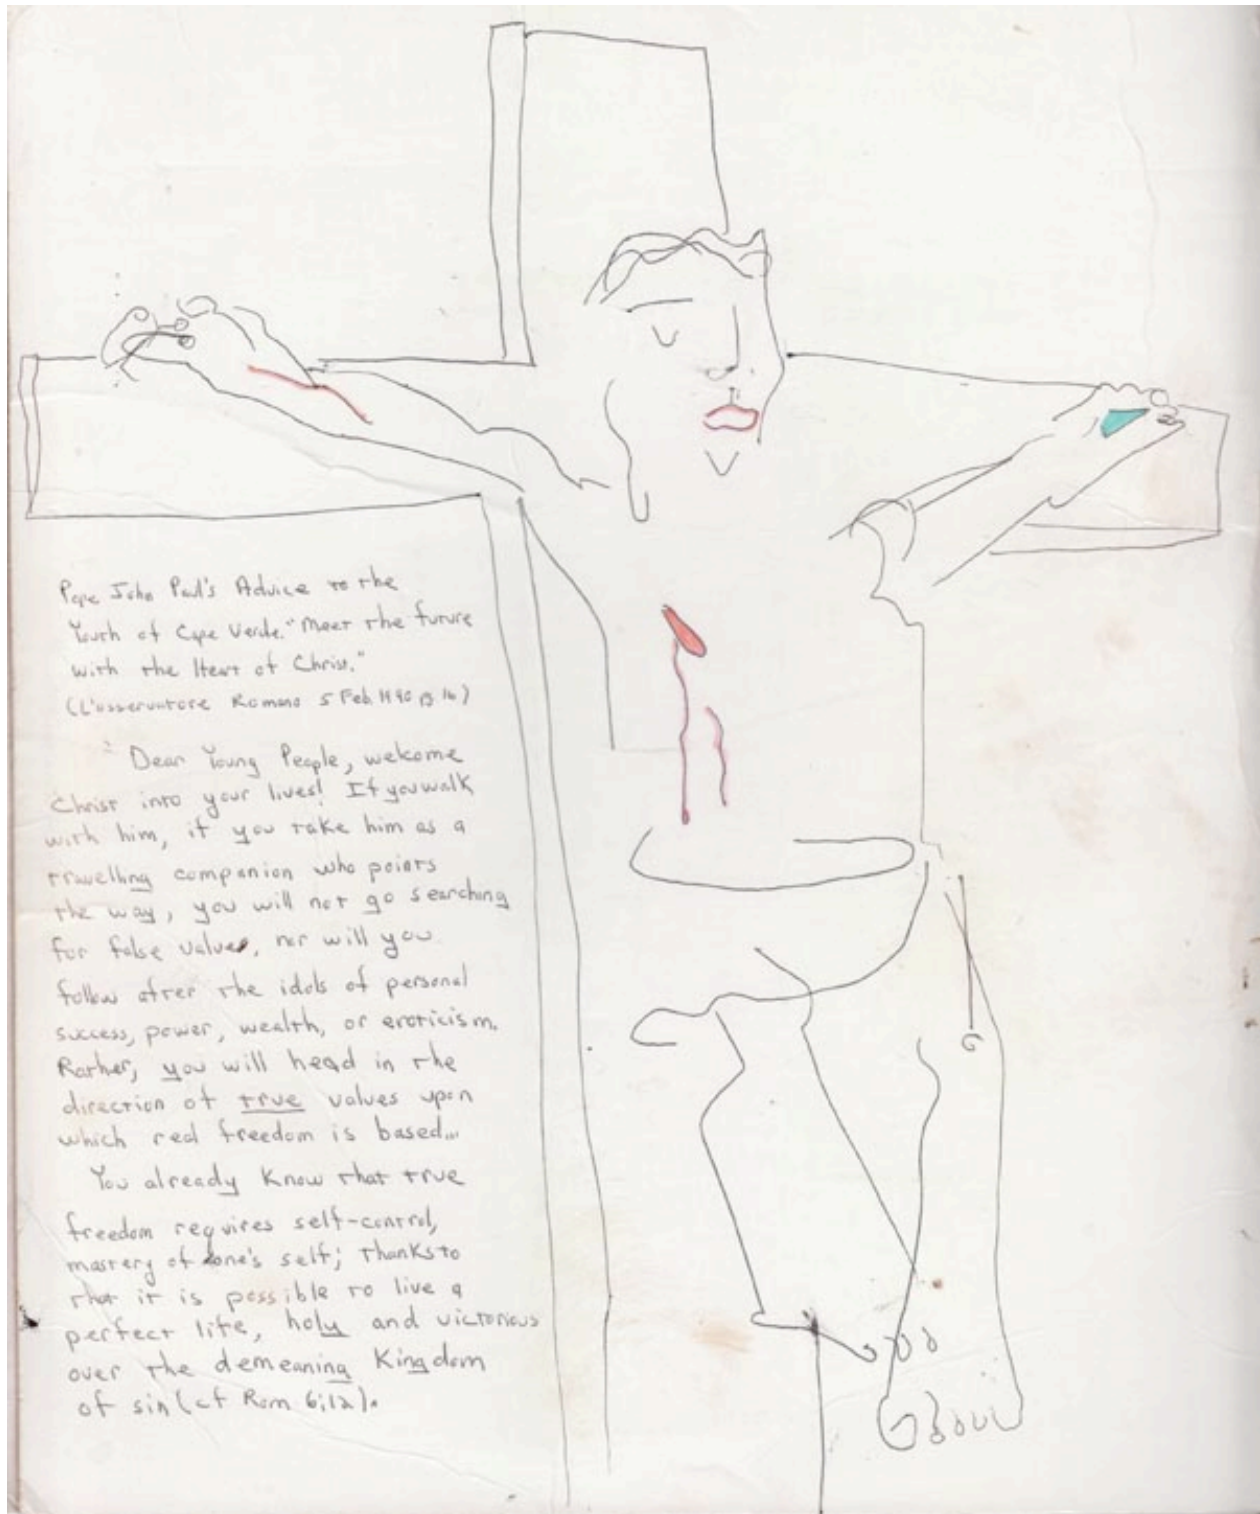 Pope John Paul's Advice to the
Youth of Cape Verde. "Meet the future
with the Heart of Christ."
(L'osservatore Romano 5 Feb. 1990 p. 16)
Dear Young People, welcome
Christ into your lives! If you walk
with him, if you take him as a
travelling companion who points
the way, you will not go searching
for false values, nor will you
follow after the idols of personal
success, power, wealth, or eroticism.
Rather, you will head in the
direction of true values upon
which real freedom is based...
You already know that true
freedom requires self-control,
mastery of one's self; thanks to
that it is possible to live a
perfect life, holy and victorious
over the demeaning Kingdom
of sin (cf Rom 6:12).